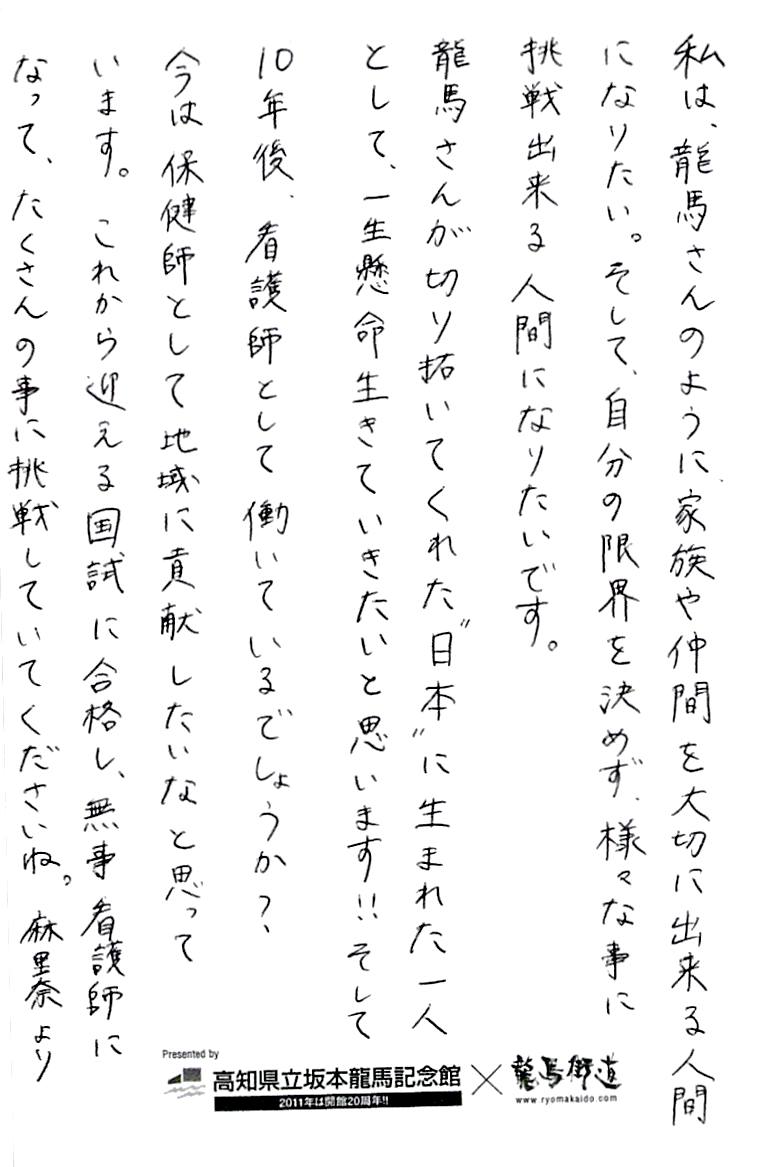 私は、龍馬さんのように、家族や仲間を大切に出来る人間
になりたい。そして、自分の限界を決めず、様々な事に
挑戦出来る人間になりたいです。
龍馬さんが切り拓いてくれた“日本”に生まれた一人
として、一生懸命生きていきたいと思います!!そして
10年後、看護師として働いているでしょうか?、
今は保健師として地域に貢献したいなと思って
います。これから迎える国試に合格し、無事看護師に
なって、たくさんの事に挑戦していてくださいね。麻里奈より
Presented by
高知県立坂本龍馬記念館×龍馬街道
2011年は開館20周年!!
www.ryomakaido.com